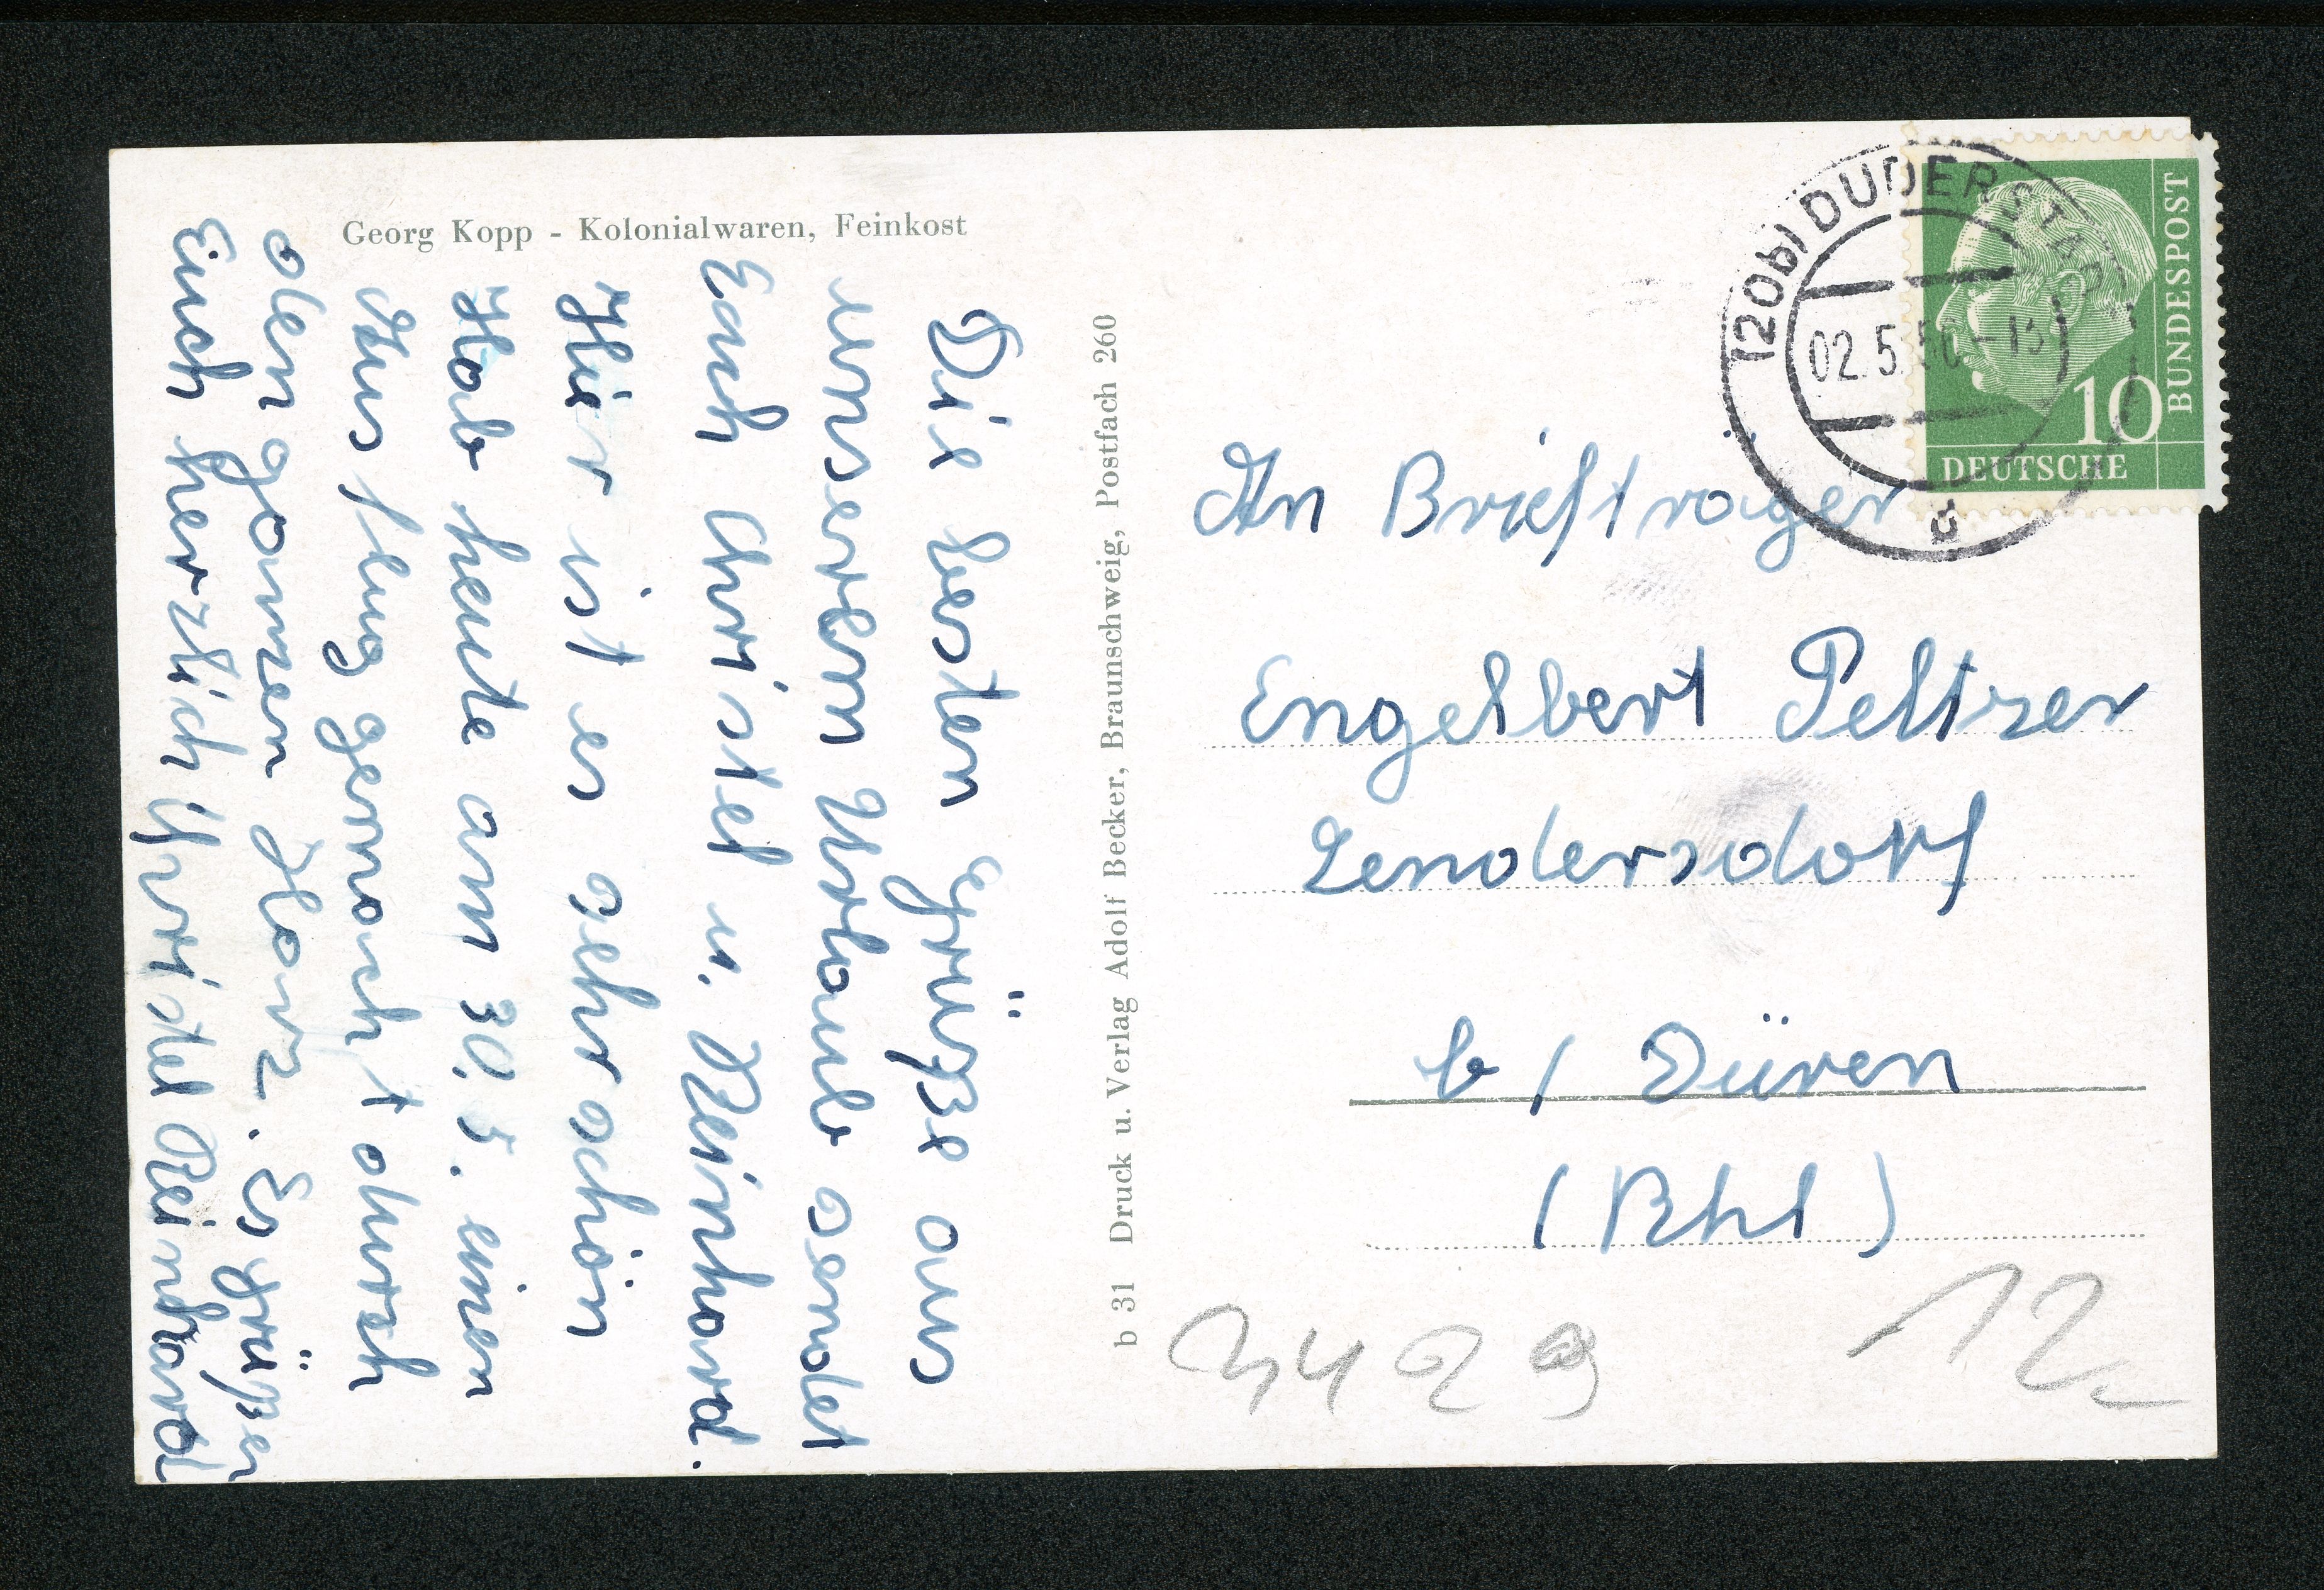 Georg Kopp - Kolonialwaren, Feinkost
Die besten Grüße aus
unserem Urlaub sendet
Euch Christel u. Reinhard.
Hier ist es sehr schön
Hab heute am 30. 5. einen
Ausflug gemacht durch
den ganzen Harz. Es grüßen
Euch herzlich Christel Reinhard
b 31 Druck u. Verlag Adolf Becker, Braunschweig, Postfach 260
(20b) DUDERSTADT
02.5.
d
BUNDESPOST
10
DEUTSCHE
An Briefträger
Engelbert Peltzer
Lendersdorf
b/ Düren
(Rhl)
12